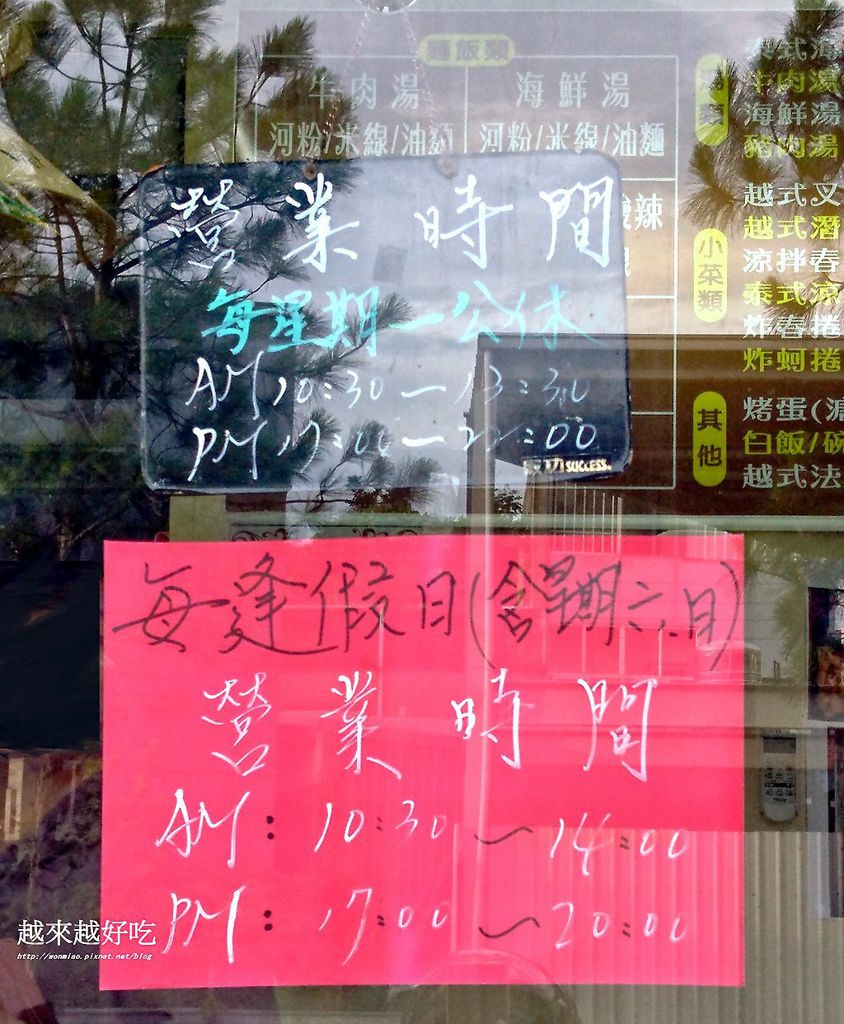 麵飯類
牛肉湯 海鮮湯
河粉/米線/油麵 河粉/米線/油麵
辣
海鮮湯
豬肉湯
牛肉湯
小菜類
越式叉
越式潛
涼拌春
泰式涼
炸春捲
炸蚵捲
其他
烤蛋(
白飯/碗
越式法
營業時間
每星期一公休
AM 10:30 — 13:30
PM 17:00 — 22:00
SUCCESS
每逢假日(含星期六.日)
營業時間
AM: 10:30 ~ 14:00
PM: 17:00 ~ 20:00
越來越好吃
http://wonmiao.pixnet.net/blog